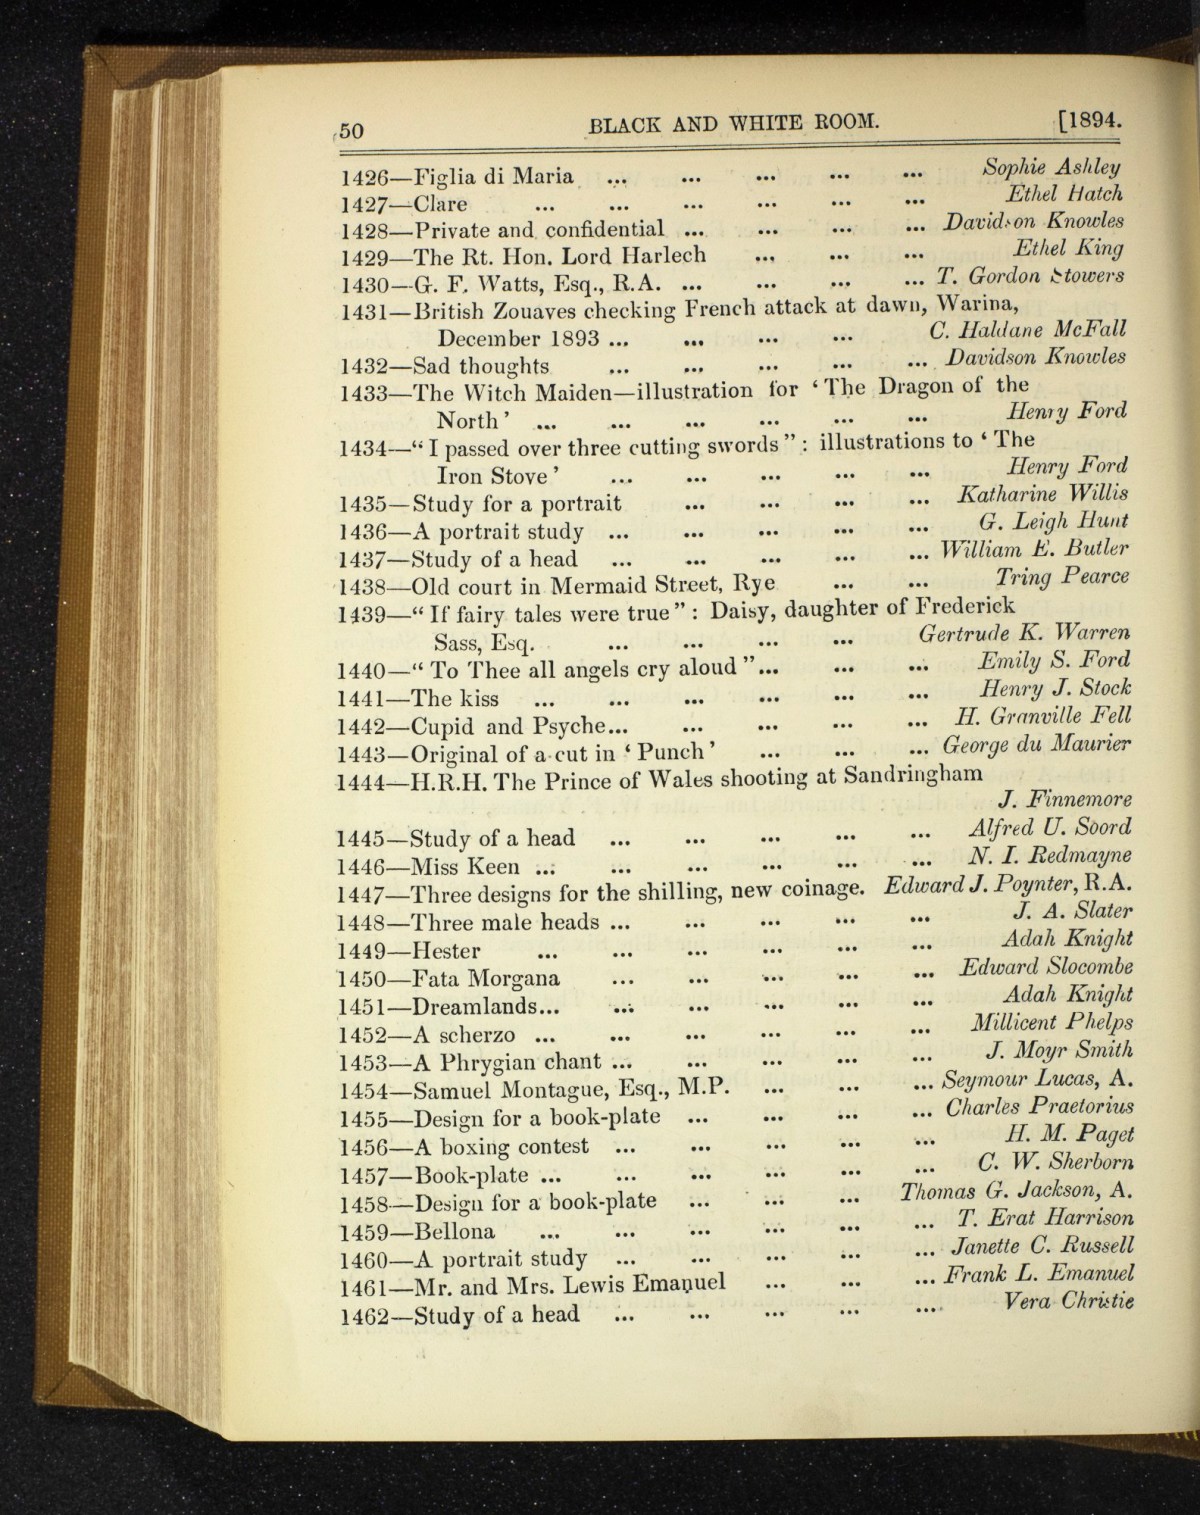 50 BLACK AND WHITE ROOM. [1894.
1426—Figlia di Maria ... ... ... ... ... Sophie Ashley
1427—Clare ... ... ... ... ... ... Ethel Hatch
1428—Private and confidential ... ... ... ... Davidson Knowles
1429—The Rt. Hon. Lord Harlech ... ... ... Ethel King
1430—G. F. Watts, Esq., R.A. ... ... ... ... T. Gordon Stowers
1431—British Zouaves checking French attack at dawn, Warina,
December 1893 ... ... ... ... C. Haldane McFall
1432—Sad thoughts ... ... ... ... ... Davidson Knowles
1433—The Witch Maiden—illustration for ‘The Dragon of the
North’ ... ... ... ... ... ... Henry Ford
1434—“I passed over three cutting swords”: illustrations to ‘The
Iron Stove’ ... ... ... ... ... Henry Ford
1435—Study for a portrait ... ... ... ... Katharine Willis
1436—A portrait study ... ... ... ... ... G. Leigh Hunt
1437—Study of a head ... ... ... ... ... William E. Butler
1438—Old court in Mermaid Street, Rye ... ... Tring Pearce
1439—“If fairy tales were true”: Daisy, daughter of Frederick
Sass, Esq. ... ... ... ... Gertrude K. Warren
1440—“To Thee all angels cry aloud”... ... ... Emily S. Ford
1441—The kiss ... ... ... ... ... ... Henry J. Stock
1442—Cupid and Psyche... ... ... ... ... H. Granville Fell
1443—Original of a cut in ‘Punch’ ... ... ... George du Maurier
1444—H.R.H. The Prince of Wales shooting at Sandringham
J. Finnemore
1445—Study of a head ... ... ... ... ... Alfred U. Soord
1446—Miss Keen ... ... ... ... ... ... N. I. Redmayne
1447—Three designs for the shilling, new coinage. Edward J. Poynter, R.A.
1448—Three male heads ... ... ... ... ... J. A. Slater
1449—Hester ... ... ... ... ... ... Adah Knight
1450—Fata Morgana ... ... ... ... ... Edward Slocombe
1451—Dreamlands... ... ... ... ... ... Adah Knight
1452—A scherzo ... ... ... ... ... ... Millicent Phelps
1453—A Phrygian chant ... ... ... ... ... J. Moyr Smith
1454—Samuel Montague, Esq., M.P. ... ... ... Seymour Lucas, A.
1455—Design for a book-plate ... ... ... ... Charles Praetorius
1456—A boxing contest ... ... ... ... ... H. M. Paget
1457—Book-plate ... ... ... ... ... ... C. W. Sherborn
1458—Design for a book-plate ... ... ... Thomas G. Jackson, A.
1459—Bellona ... ... ... ... ... ... T. Erat Harrison
1460—A portrait study ... ... ... ... ... Janette C. Russell
1461—Mr. and Mrs. Lewis Emanuel ... ... ... Frank L. Emanuel
1462—Study of a head ... ... ... ... ... Vera Christie